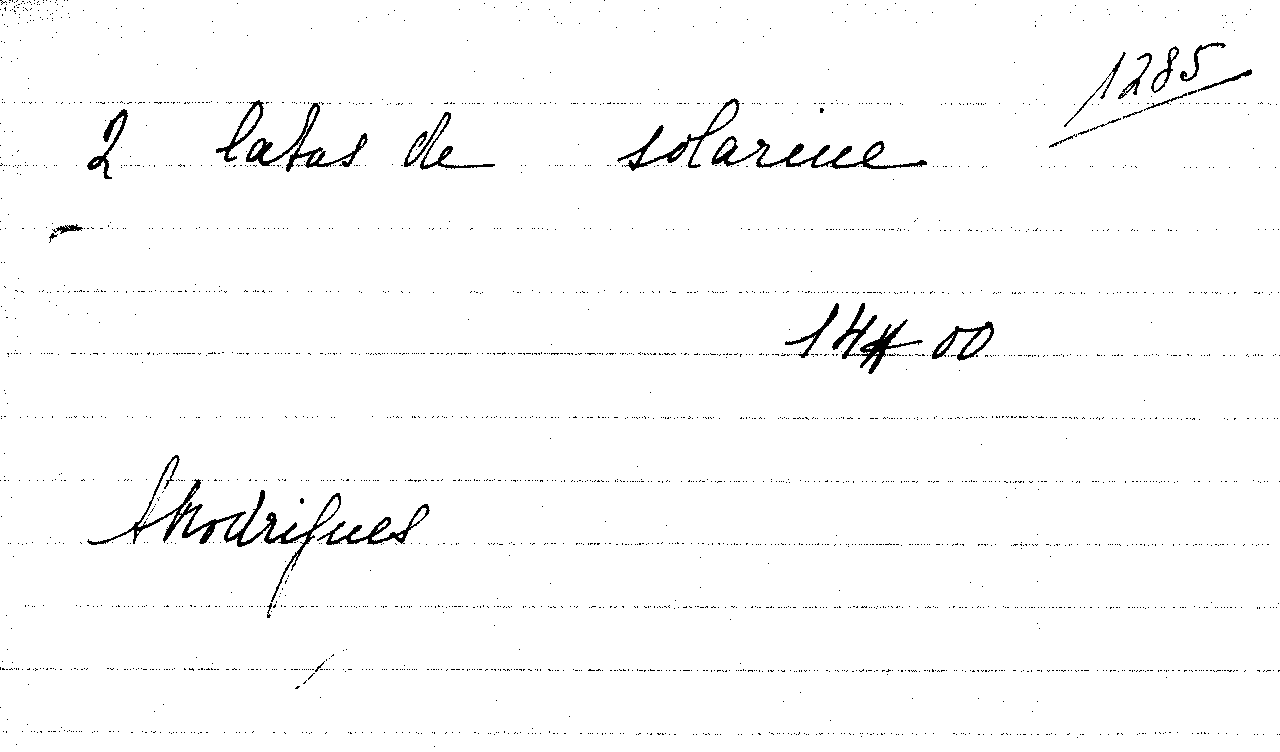 1285
2 latas de solarine
14$00
ARodrigues